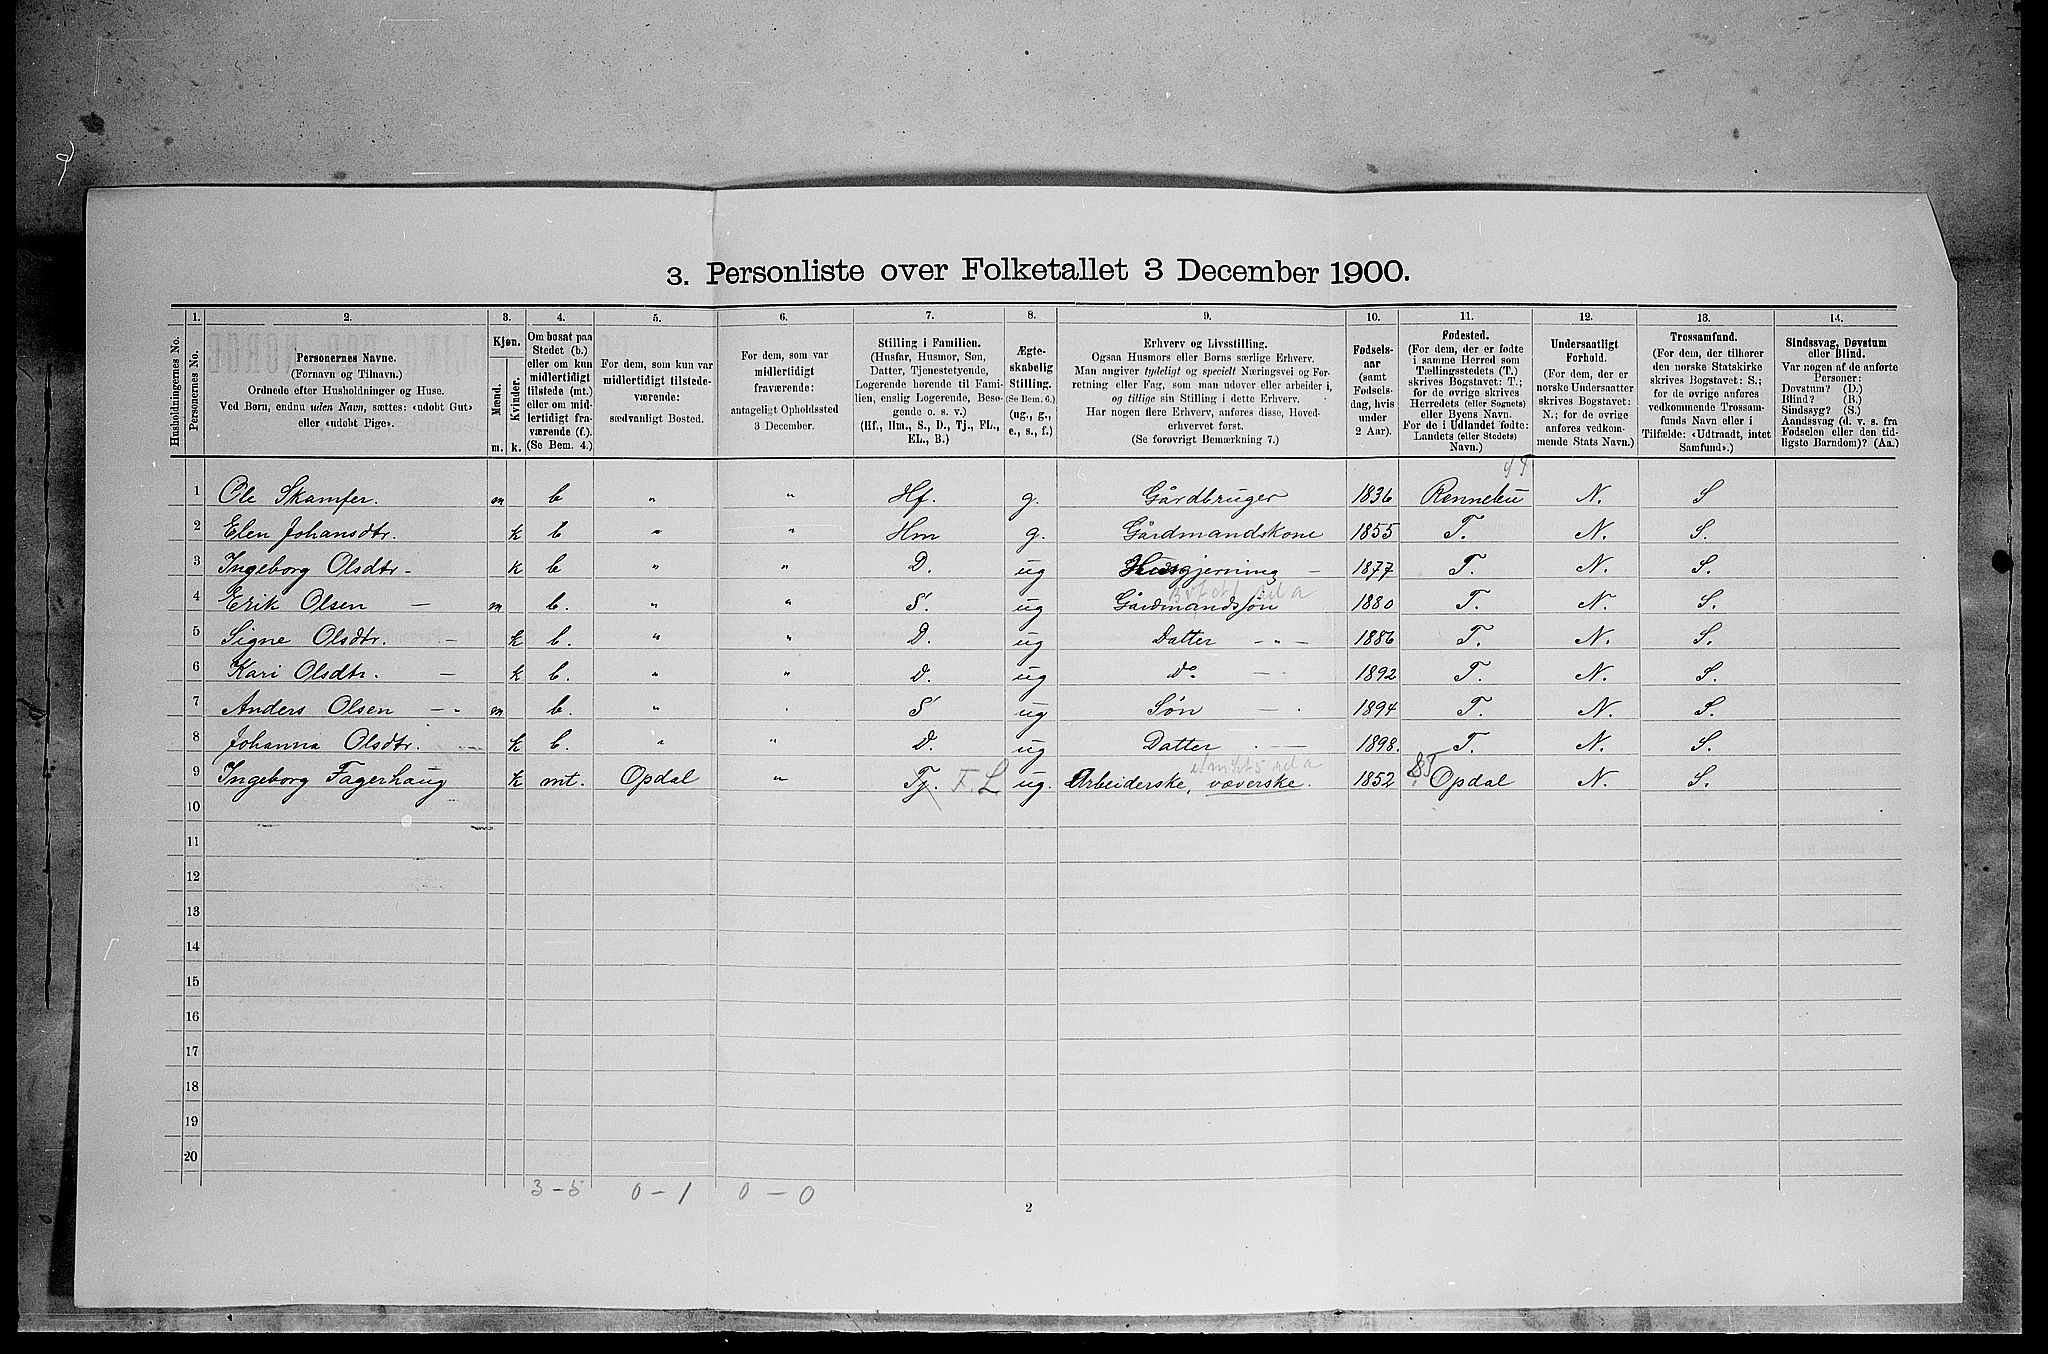 3. Personliste over Folketallet 3 December 1900.
1. 2. 3. 4. 5. 6. 7. 8. 9. 10. 11. 12. 13. 14.
Husholdningernes No.
Personernes No.
Personernes Navne.
(Fornavn og Tilnavn.)
Ordnede efter Husholdninger og Huse.
Ved Børn, endnu uden Navn, sættes: «udøbt Gut»
eller «udøbt Pige».
Kjøn.
Mænd.
Kvinder.
m. k.
Om bosat paa
Stedet (b.)
eller om kun
midlertidigt
tilstede (mt.)
eller om mid-
lertidigt fra-
værende (f.).
(Se Bem. 4.)
For dem, som kun var
midlertidigt tilstede-
værende:
sædvanligt Bosted.
For dem, som var
midlertidigt
fraværende:
antageligt Opholdssted
3 December.
Stilling i Familien.
(Husfar, Husmor, Søn,
Datter, Tjenestetyende,
Logerende hørende til Fami-
lien, enslig Logerende, Besø-
gende o. s. v.)
(Hf., Hm., S., D., Tj., FL.,
EL., B.)
Ægte-
skabelig
Stilling.
(Se Bem. 6.)
(ug., g.,
e., s., f.)
Erhverv og Livsstilling.
Ogsaa Husmors eller Børns særlige Erhverv.
Man angiver tydeligt og specielt Næringsvei og For-
retning eller Fag, som man udover eller arbeider i,
og tillige sin Stilling i dette Erhverv.
Har nogen flere Erhverv, anføres disse, Hoved-
erhvervet først.
(Se forøvrigt Bemærkning 7.)
Fødsels-
aar
(samt
Fødsels-
dag, hvis
under
2 Aar).
Fødested.
(For dem, der er fødte
i samme Herred som
Tællingsstedets (T.)
skrives Bogstavet: T.;
for de øvrige skrives
Herredets (eller Sognets)
eller Byens Navn.
For de i Udlandet fødte:
Landets (eller Stedets)
Navn.)
Undersaatligt
Forhold.
(For dem, der er
norske Undersaatter
skrives Bogstavet:
N.; for de øvrige
anføres vedkom-
mende Stats Navn.)
Trossamfund.
(For dem, der tilhører
den norske Statskirke
skrives Bogstavet: S.;
for de øvrige anføres
vedkommende Trossam-
funds Navn eller i
Tilfælde: «Udtraadt, intet
Samfund».)
Sindssvag, Døvstum
eller Blind.
Var nogen af de anførte
Personer:
Døvstum? (D.)
Blind? (B.)
Sindssyg? (S.)
Aandssvag (d. v. s. fra
Fødselen eller den tid-
ligste Barndom)? (Aa.)
1 Ole Skamfer. m b " " Hf. g. Gårdbruger 1836 Rennebu N. S
2 Elen Johansdtr. k b " " Hm g. Gårdmandskone 1855 T. N. S.
3 Ingeborg Olsdtr - k b " " D. ug Husgjerning - 1877 T. N. S.
4 Erik Olsen - m b. " " S. ug Gårdmandssøn 1880 T. N. S.
5 Signe Olsdtr. - k b. " " D. ug Datter - " - 1886 T. N. S.
6 Kari Olsdtr. - k b. " " D. ug Do - 1892 T. N. S.
7 Anders Olsen - - m b. " " S ug Søn - 1894 T. N. S.
8 Johanna Olsdtr. k b. " " D. ug Datter - 1898. T. N. S.
9 Ingeborg Fagerhaug k mt. Opdal " Tj. F. L ug. Arbeiderske, væverske. 1852 Opdal N. S.
10
11
12
13
14
15
16
17
18
19
20
3-5 0-1 0-0
2